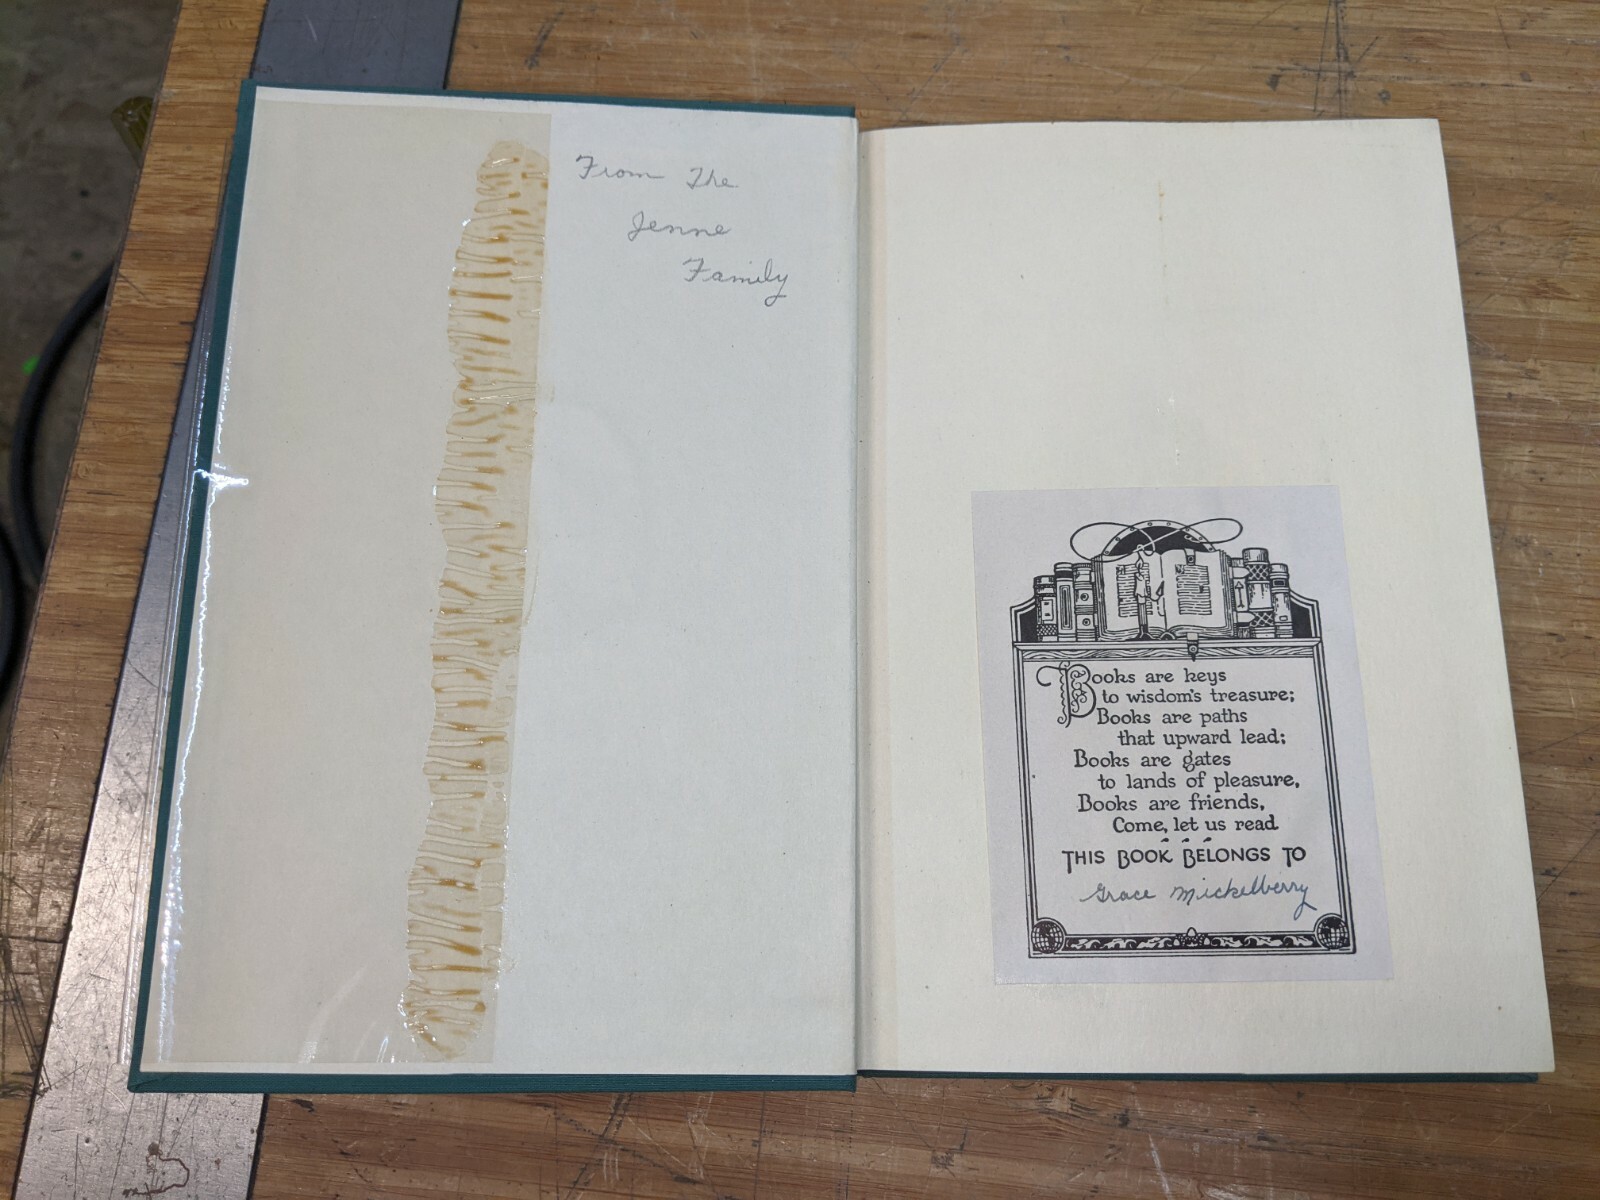 From The
Jenne
Family
Books are keys
to wisdom's treasure;
Books are paths
that upward lead;
Books are gates
to lands of pleasure,
Books are friends,
Come, let us read
THIS BOOK BELONGS TO
Grace Mickelberry